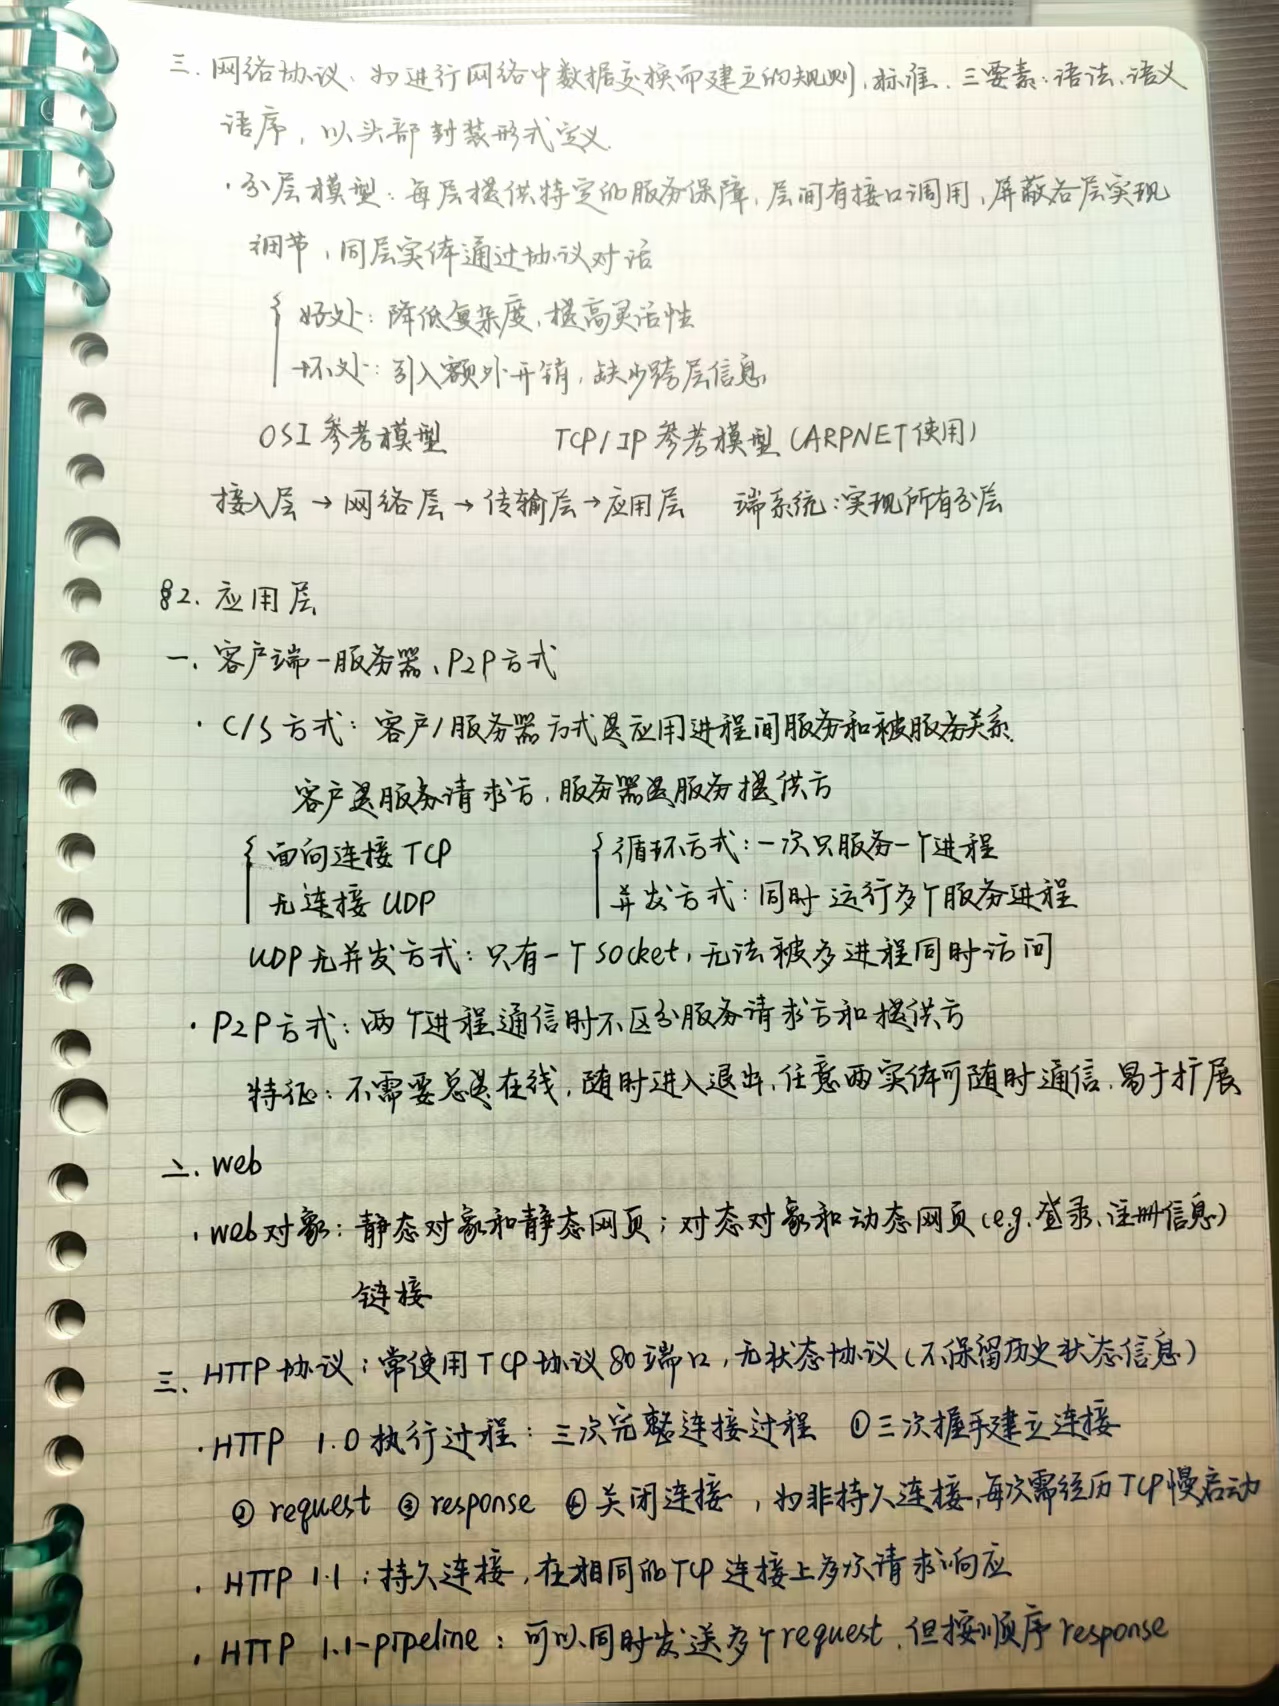 三. 网络协议: 为进行网络中数据交换而建立的规则、标准. 三要素: 语法、语义
语序, 以头部封装形式定义.
· 分层模型: 每层提供特定的服务保障, 层间有接口调用, 屏蔽各层实现
细节, 同层实体通过协议对话
好处: 降低复杂度, 提高灵活性
坏处: 引入额外开销, 缺少跨层信息
OSI 参考模型 TCP/IP 参考模型 (ARPNET使用)
接入层 → 网络层 → 传输层 → 应用层 端系统: 实现所有分层
§2. 应用层
一. 客户端-服务器、P2P方式
· C/S 方式: 客户/服务器方式是应用进程间服务和被服务关系.
客户是服务请求方, 服务器是服务提供方
面向连接 TCP 循环方式: 一次只服务一个进程
无连接 UDP 并发方式: 同时运行多个服务进程
UDP无并发方式: 只有一个socket, 无法被多进程同时访问
· P2P方式: 两个进程通信时不区分服务请求方和提供方
特征: 不需要总是在线, 随时进入退出, 任意两实体可随时通信, 易于扩展
二. Web
· Web对象: 静态对象和静态网页; 对态对象和动态网页 (e.g. 登录、注册信息)
链接
三. HTTP 协议: 常使用TCP协议80端口, 无状态协议 (不保留历史状态信息)
· HTTP 1.0 执行过程: 三次完整连接过程 ①三次握手建立连接
② request ③ response ④ 关闭连接, 为非持久连接, 每次需经历TCP慢启动
· HTTP 1.1: 持久连接, 在相同的TCP连接上多次请求响应
· HTTP 1.1-pipeline: 可以同时发送多个request, 但按顺序response